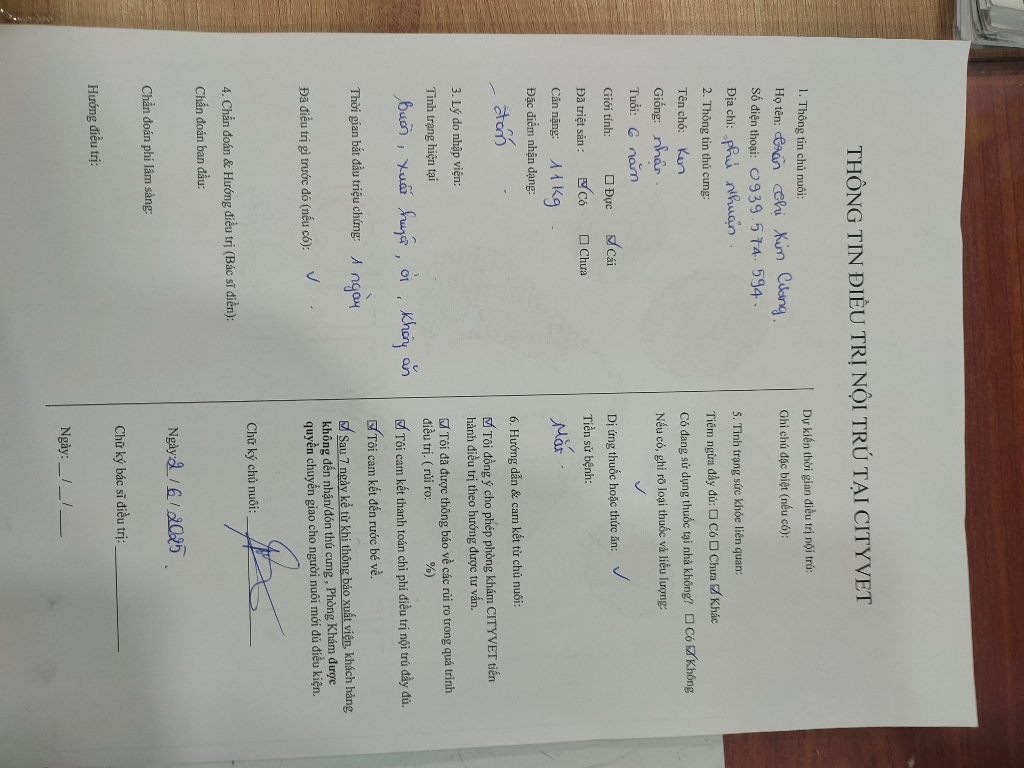 THÔNG TIN ĐIỀU TRỊ NỘI TRÚ TẠI CITYVET
1. Thông tin chủ nuôi:
Họ tên: Trần Thị Kim Cương.
Số điện thoại: 0939.574.594.
Địa chỉ: phú nhuận.
2. Thông tin thú cưng:
Tên chó: Ken
Giống: nhật.
Tuổi: 6 năm
Giới tính: ☐ Đực ☑ Cái
Đã triệt sản : ☑ Có ☐ Chưa
Cân nặng: 11 Kg.
Đặc điểm nhận dạng:
3. Lý do nhập viện:
Tình trạng hiện tại
Buồn, xuất huyết, ói, không ăn
Thời gian bắt đầu triệu chứng: 1 ngày
Đã điều trị gì trước đó (nếu có): ✓.
4. Chẩn đoán & Hướng điều trị (Bác sĩ điền):
Chẩn đoán ban đầu:
Chẩn đoán phi lâm sàng:
Hướng điều trị:
Dự kiến thời gian điều trị nội trú:
Ghi chú đặc biệt (nếu có):
5. Tình trạng sức khỏe liên quan:
Tiêm ngừa đầy đủ: ☐ Có ☐ Chưa ☑ Khác
Có đang sử dụng thuốc tại nhà không? ☐ Có ☑ Không
Nếu có, ghi rõ loại thuốc và liều lượng:
✓
Dị ứng thuốc hoặc thức ăn: ✓
Tiền sử bệnh:
Mắt.
6. Hướng dẫn & cam kết từ chủ nuôi:
☑ Tôi đồng ý cho phép phòng khám CITYVET tiến
hành điều trị theo hướng được tư vấn.
☑ Tôi đã được thông báo về các rủi ro trong quá trình
điều trị. ( rủi ro: %)
☑ Tôi cam kết thanh toán chi phí điều trị nội trú đầy đủ.
☑ Tôi cam kết đến rước bé về.
☑ Sau 7 ngày kể từ khi thông báo xuất viện, khách hàng
không đến nhận/đón thú cưng , Phòng Khám được
quyền chuyển giao cho người nuôi mới đủ điều kiện.
Chữ ký chủ nuôi:
Ngày: 2 / 6 / 2025.
Chữ ký bác sĩ điều trị:
Ngày: __ / __ / ___